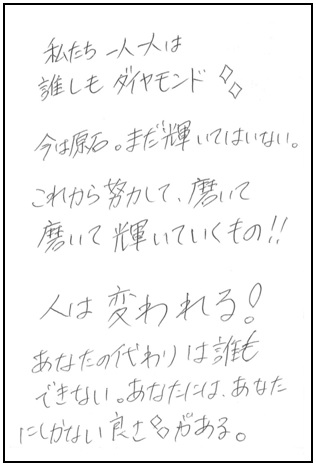 私たち 一人一人は
誰しも ダイヤモンド
今は原石。まだ輝いてはいない。
これから努力して、磨いて
磨いて 輝いていくもの!!
人は 変われる!
あなたの代わりは誰も
できない。あなたには、あなた
にしかない良さがある。